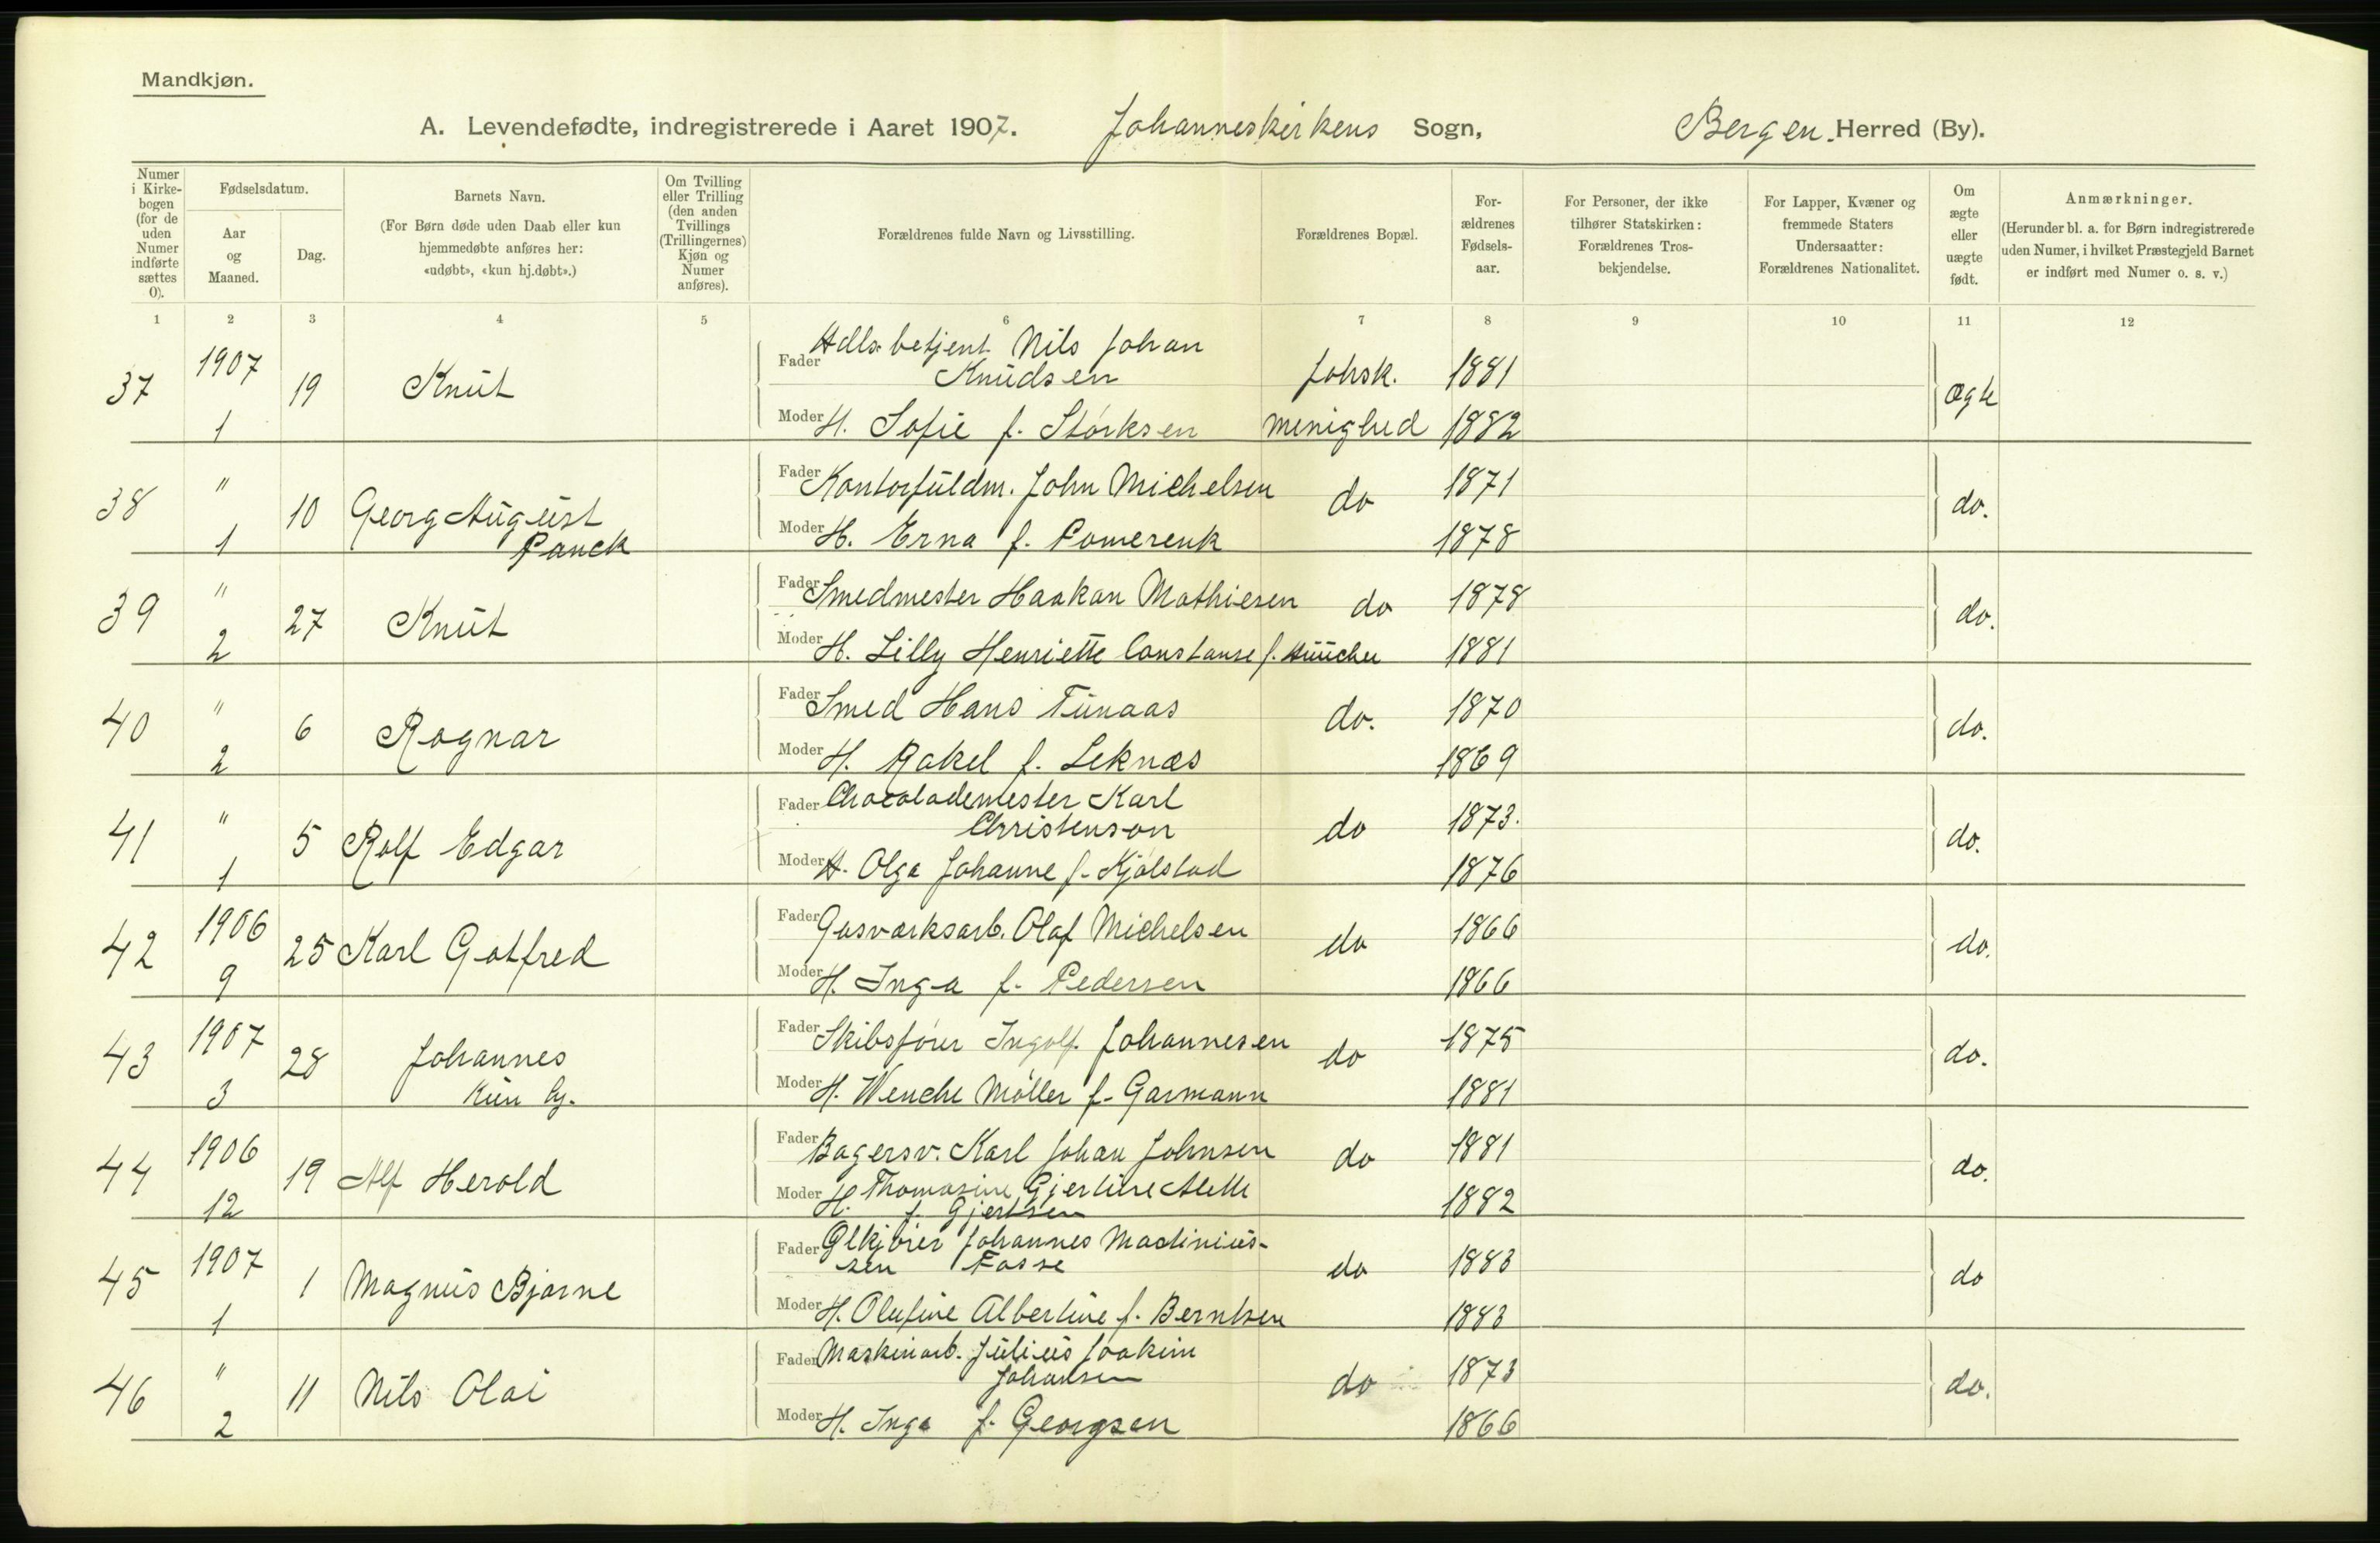 Mandkjøn.
A. Levendefødte, indregistrerede i Aaret 1907. Johanneskirkens Sogn, Bergen. Herred (By).
Numer i Kirke-bogen (for de uden Numer indførte sættes 0).
Fødselsdatum.
Aar og Maaned.
Dag.
Barnets Navn.
(For Børn døde uden Daab eller kun
hjemmedøbte anføres her:
«udøbt», «kun hj.døbt».)
Om Tvilling eller Trilling (den anden Tvillings (Trillingernes) Kjøn og Numer anføres).
Forældrenes fulde Navn og Livsstilling.
Forældrenes Bopæl.
For-ældrenes Fødsels-aar.
For Personer, der ikke
tilhører Statskirken:
Forældrenes Tros-
bekjendelse.
For Lapper, Kvæner og
fremmede Staters
Undersaatter:
Forældrenes Nationalitet.
Om ægte eller uægte født.
Anmærkninger.
(Herunder bl. a. for Børn indregistrerede
uden Numer, i hvilket Præstegjeld Barnet
er indført med Numer o. s. v.)
1 2 3 4 5 6 7 8 9 10 11 12
37 1907 1 19 Knut
Fader Hdlsbetjent Nils Johan
Knudsen Johsk. 1881
Moder H. Sofie f. Størksen menighed 1882 Ægte
38 " 1 10 Georg August
Panck
Fader Kontorfuldm. John Michelsen do 1871
Moder H. Erna f. Pomerenk 1878 do.
39 " 2 27 Knut
Fader Smedmester Haakan Mathiesen do 1878
Moder H. Lilly Henriette Constanse f. 1881 do.
40 " 2 6 Ragnar
Fader Smed Hans Tunaas do. 1870
Moder H. Rakel f. Leknæs 1869 do.
41 " 1 5 Rolf Edgar
Fader Chocolademester Karl
Christenson do 1873.
Moder H. Olga Johanne f. Kjølstad 1876 do.
42 1906 9 25 Karl Gotfred
Fader Gasværksarb. Olaf Michelsen do 1866
Moder H. Inga f. Pedersen 1866 do.
43 1907 3 28 Johannes
Kun hj.
Fader Skibsfører Ingolf Johannesen do 1875
Moder H. Wenche Møller f. Garmann 1881 do.
44 1906 12 19 Alf Herold
Fader Bagersv. Karl Johan Johnsen do 1881
Moder H. Thomasine Gjertine Alette
f. Gjertsen 1882 do.
45 1907 1 1 Magnus Bjarne
Fader Ølkjører Johannes Martinius-
sen Fosse do 1883
Moder H. Olufine Albertine f. Berntsen 1883 do
46 " 2 11 Nils Olai
Fader Maskinarb. Julius Joakim
Johansen do 1873
Moder H. Inga f. Georgsen 1866 do.